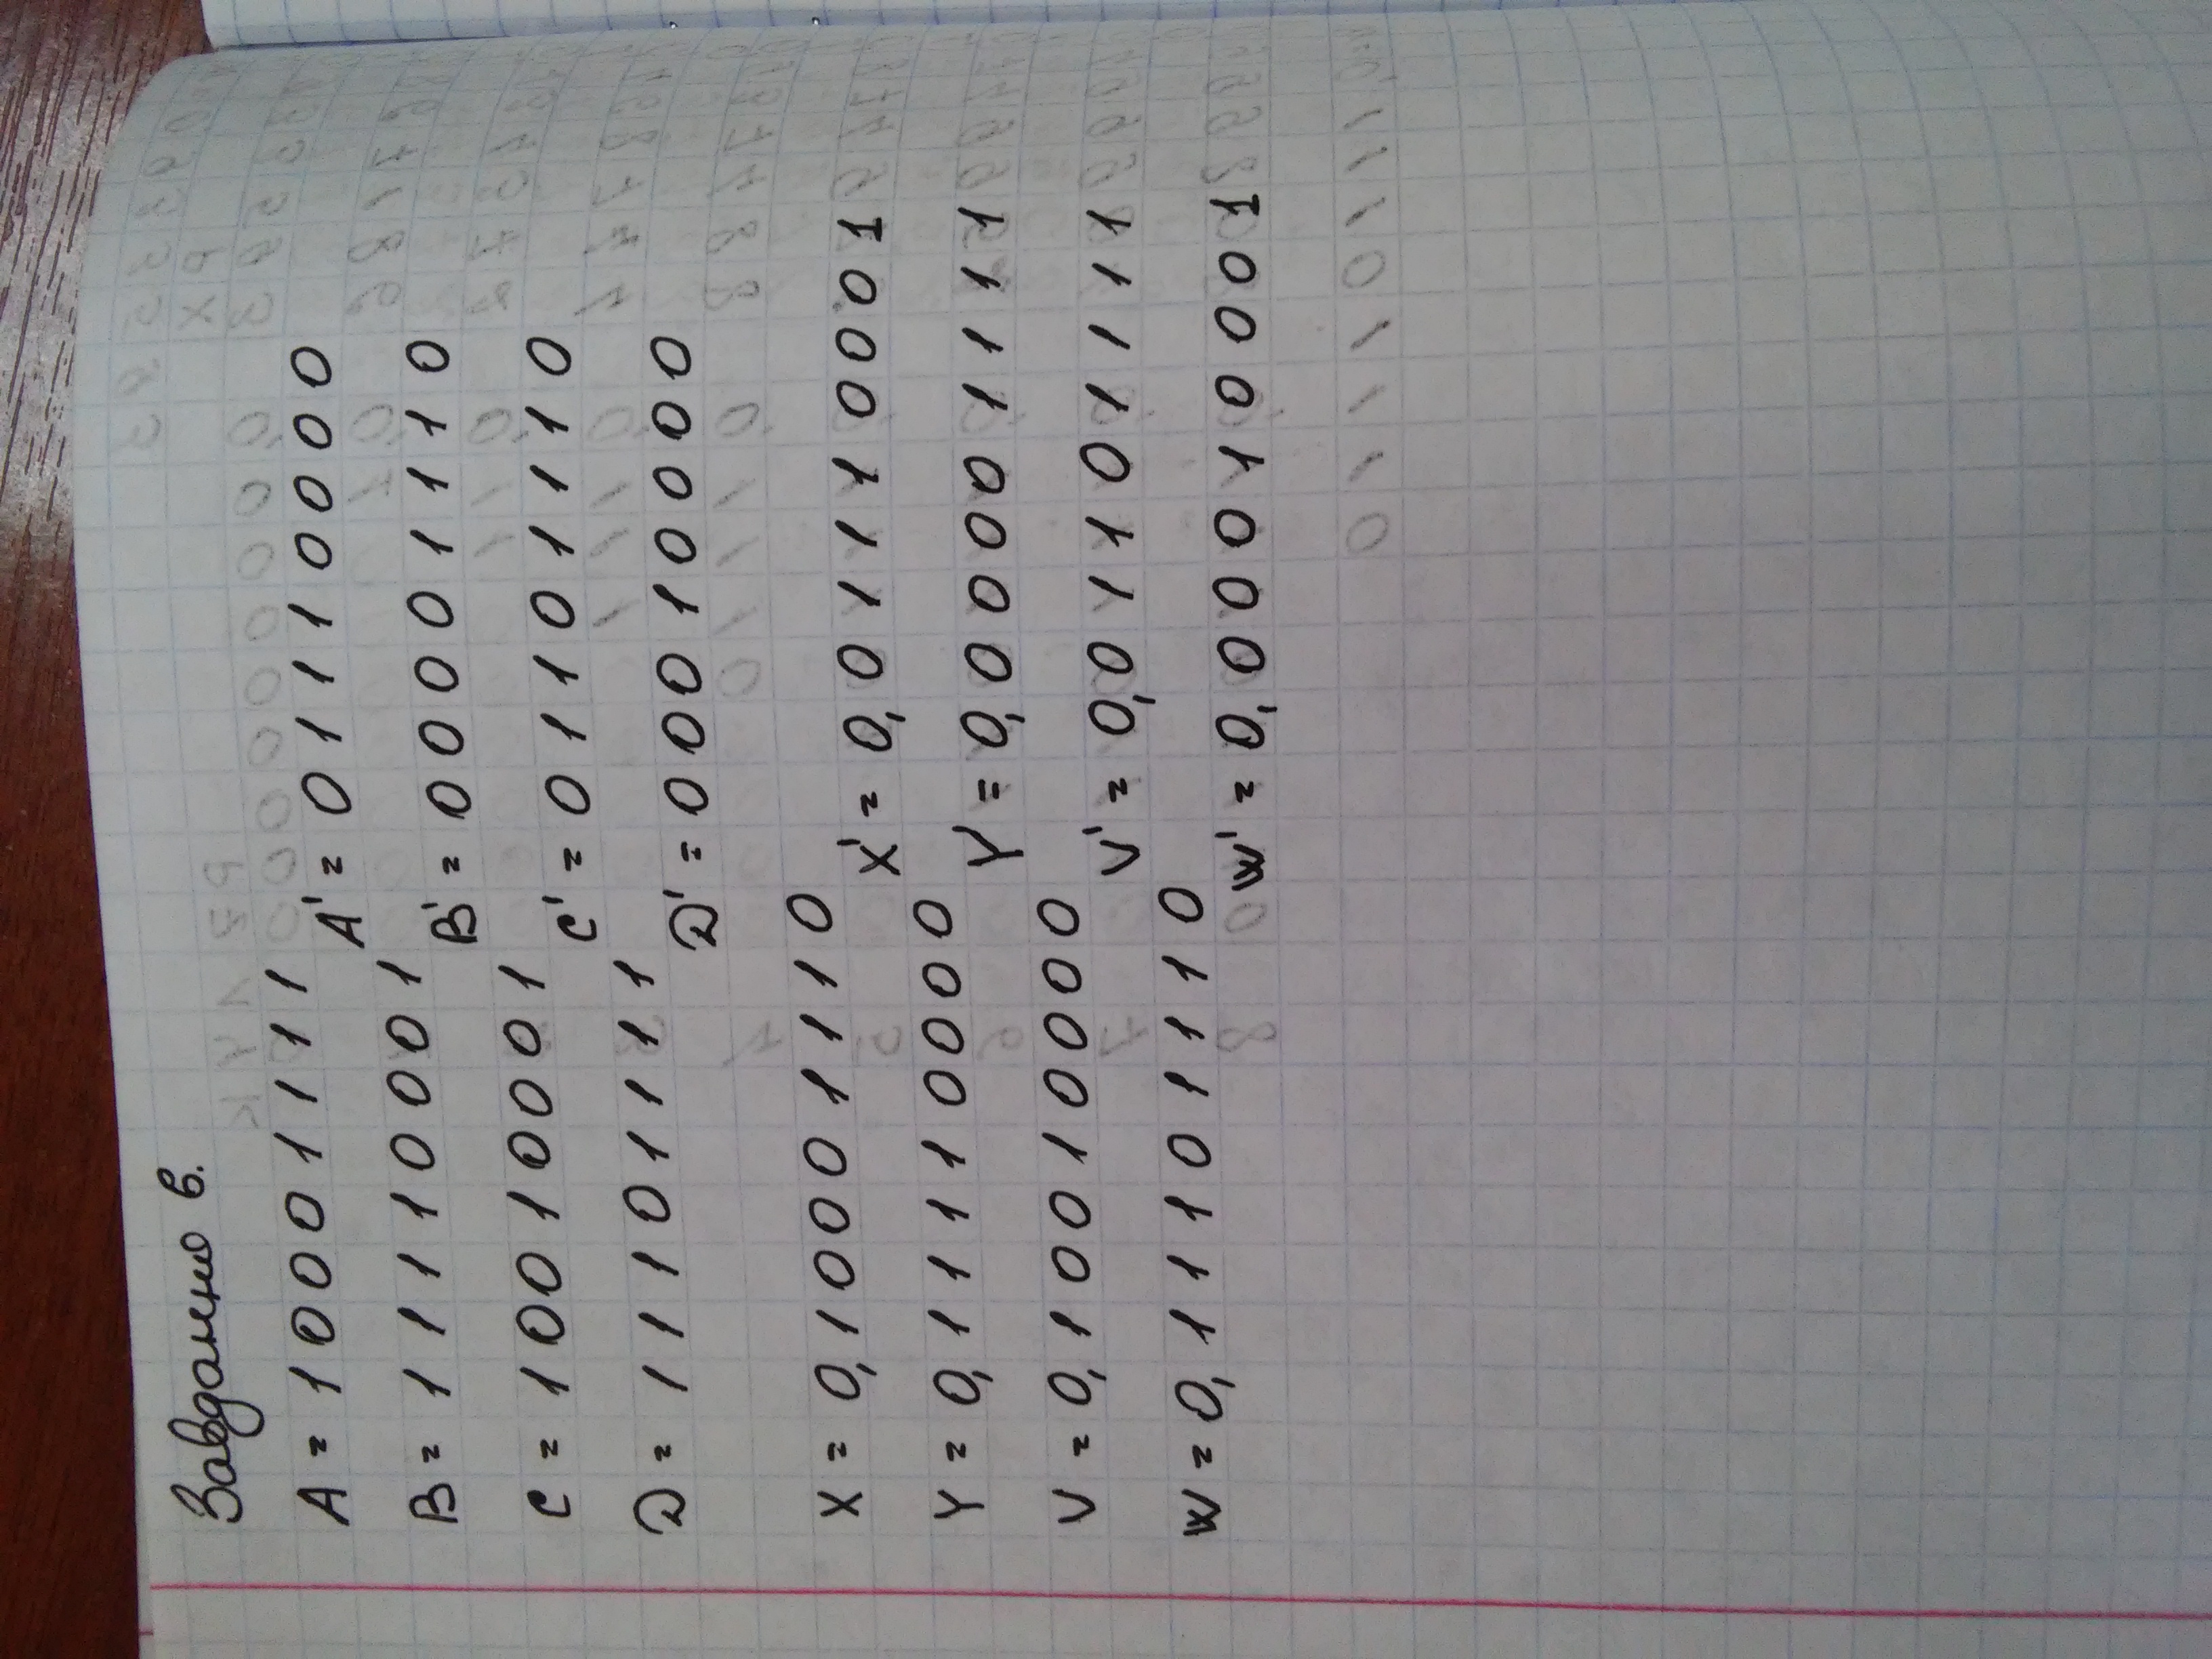 Завдання 6.
A = 10001111 A' = 01110000
B = 11110001 B' = 00001110
C = 10010001 C' = 01101110
D = 11101111 D' = 00010000
X = 0,10001110 X' = 0,01110001
Y = 0,11110000 Y' = 0,00001111
V = 0,10010000 V' = 0,01101111
W = 0,11101110 W' = 0,00010001